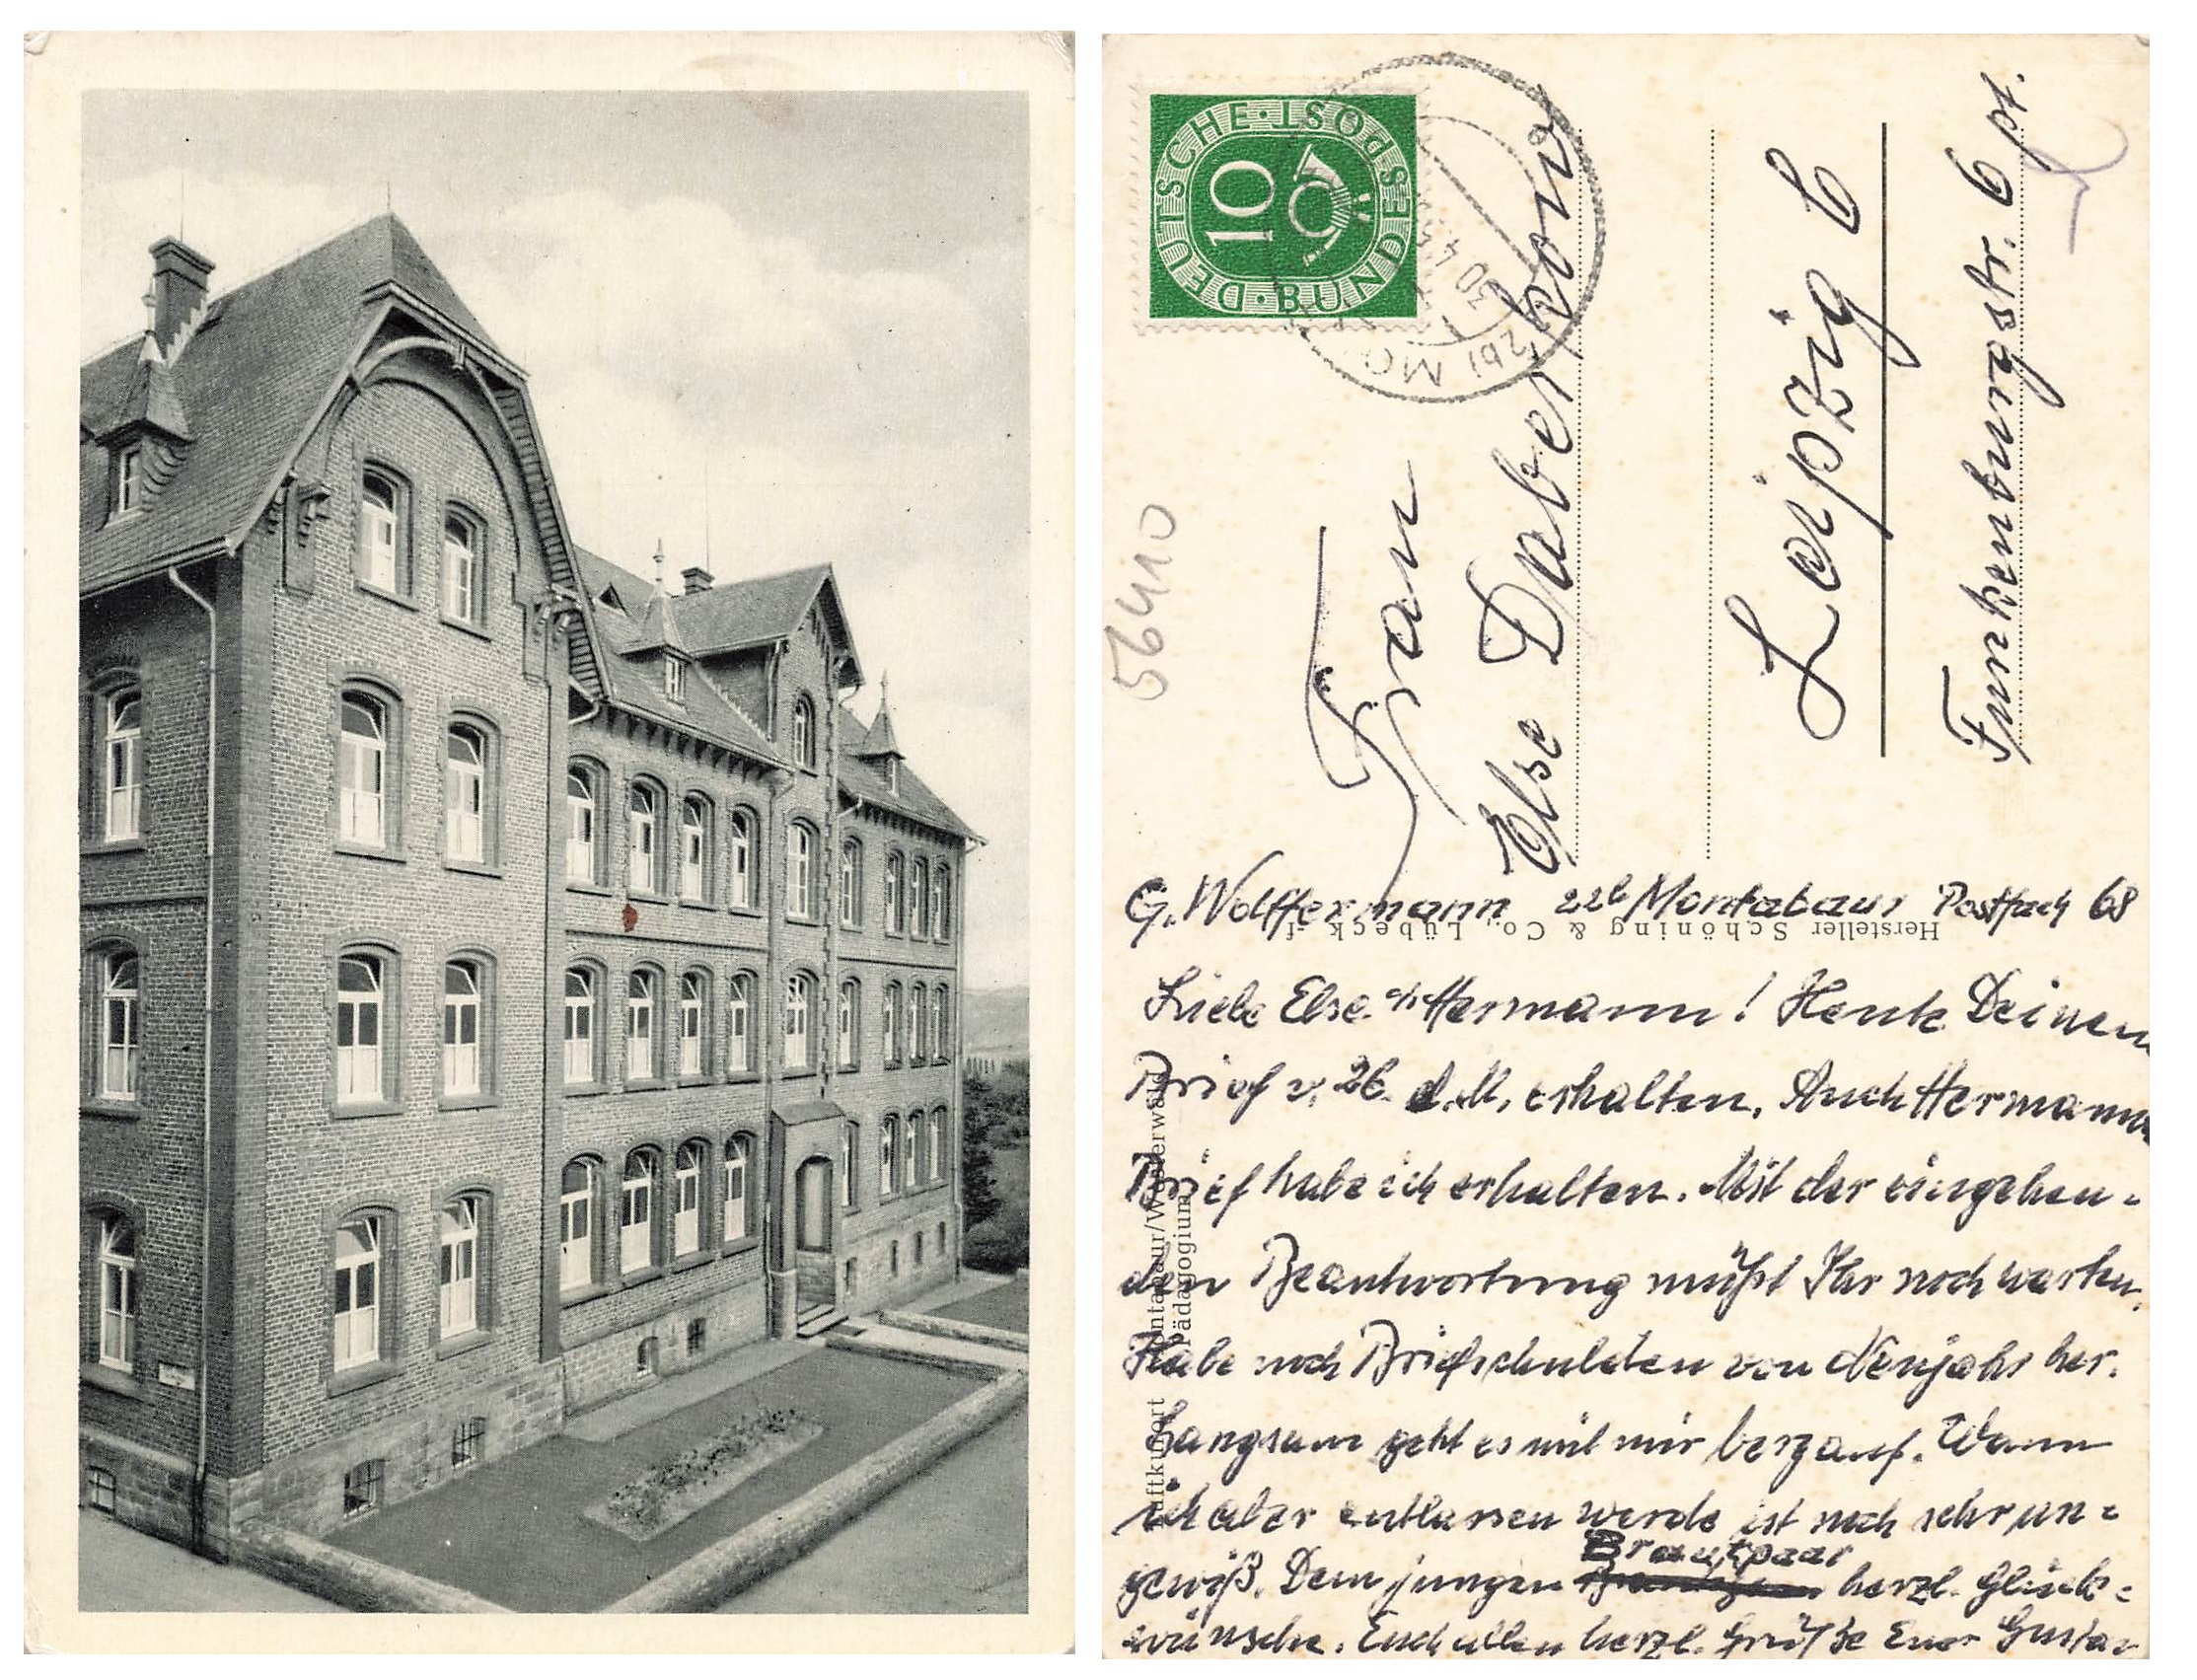 DEUTSCHE · BUNDESPOST
10
30.4.5
22b MO
56410
Frau
Else Daberkow
Leipzig C
Funkenburgstr. 6 pt.
Hersteller Schöning & Co., Lübeck
Luftkurort Montabaur/Westerwald
Pädagogium
G. Wolffermann 22b Montabaur Postfach 68
Liebe Else u. Hermann! Heute Deinen
Brief v. 26. d.M. erhalten. Auch Hermanns
Brief habe ich erhalten. Mit der eingehen-
den Beantwortung müßt Ihr noch warten.
Habe noch Briefschulden von Neujahr her.
Langsam geht es mit mir bergauf. Wann
ich aber entlassen werde ist noch sehr un-
gewiß. Dem jungen Brautpaar herzl. Glück-
wünsche. Euch allen herzl. Grüße Euer Gustav